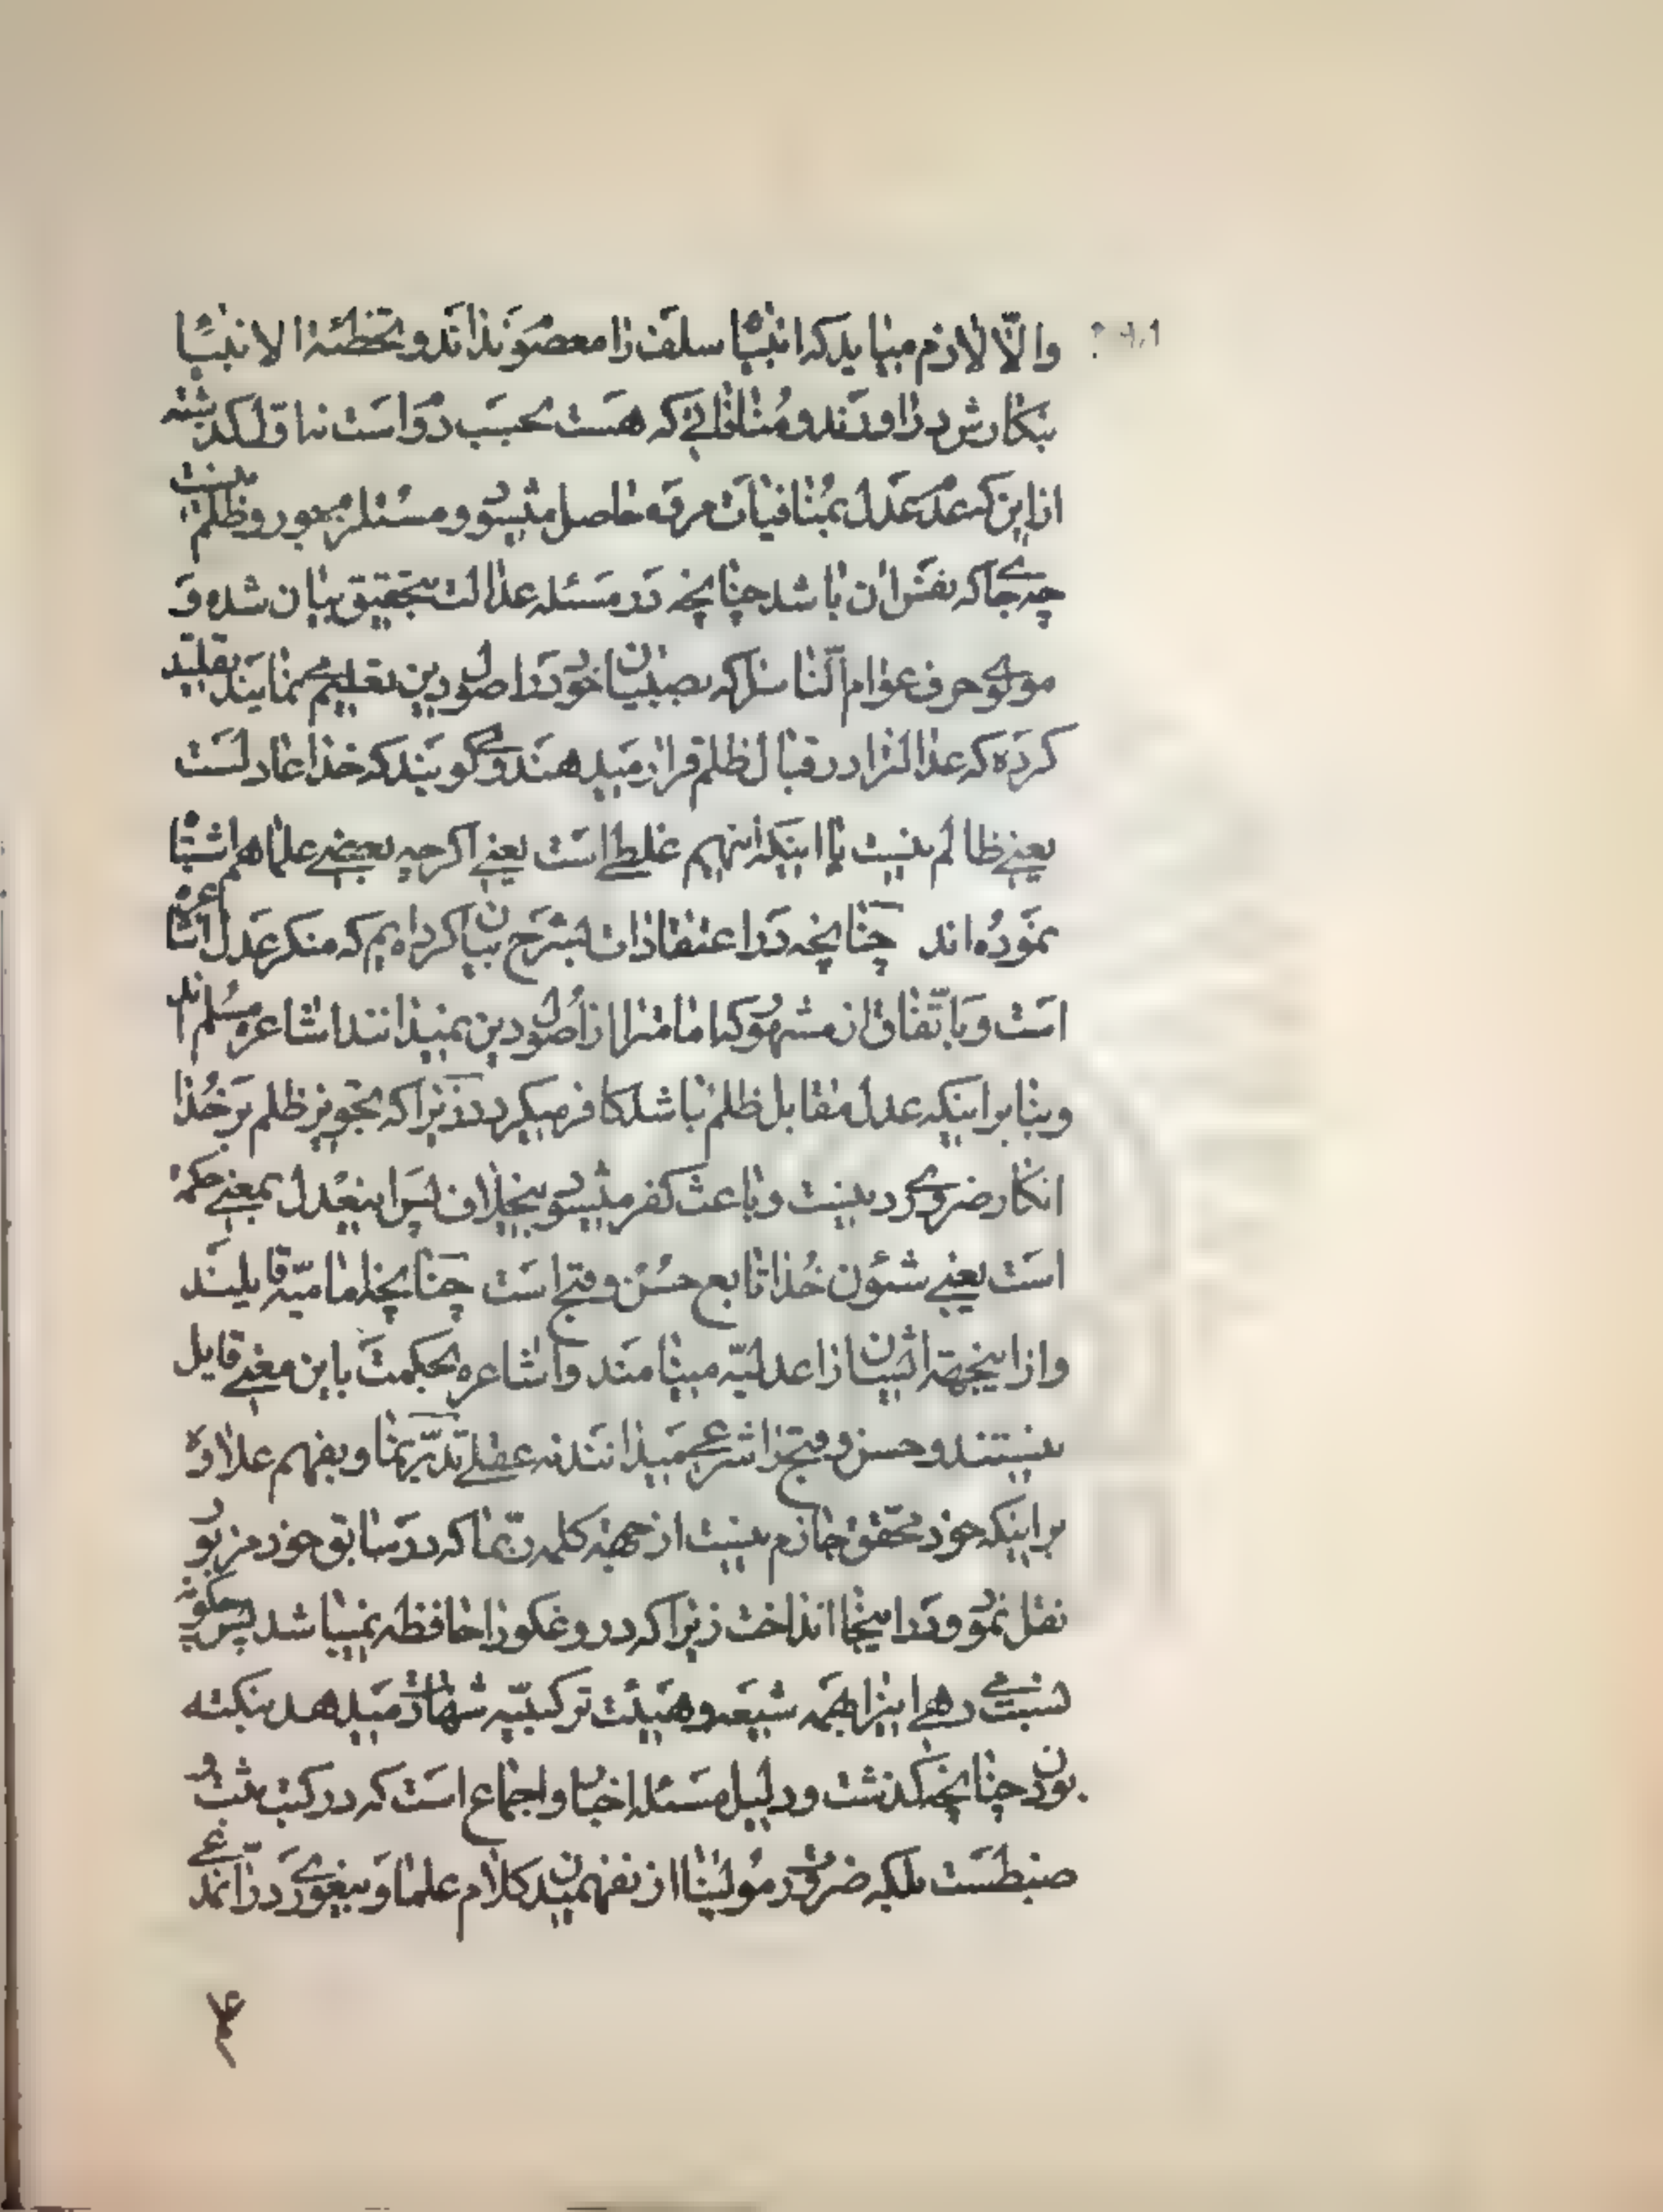 والّا لازم میاید که انبیا سلف را معصوم ندانند و تخطئة الانبیا
بنکارش دراوردند و منافاتی که هست بحسب دواست بنا و قلکد شته
از این که عدم عدل بمنافیات مروه حاصل میشود و مستلزم جور و ظلم نیست
چه جای که نفس ان باشد چنانچه در مسئله عدالت بتحقیق بیان شده و
مولوی حرف عوام النّاس را که بصبیان خود در اصول دین تعلیم مینمایند تقلید
کرده که عدالترا در قبال ظلم قرار میدهند و گویند که خدا عادلست
یعنی ظالم نیست با اینکه اینهم غلطی است یعنی اکرچه بعضی علما هم اشتباه
نموده اند چنانچه در اعتقادات بشرح بیان کرده ایم که منکر عدل اشاعره
است و باتّفاق از مشهور که امامترا از اصول دین نمیدانند اشاعره مسلم اند
و بنا بر اینکه عدل مقابل ظلم باشد کافر میکردند زیرا که تجویز ظلم بر خدا
انکار ضروری دینست و باعث کفر میشود بخلاف پس اینعدل بمعنی حکمة
است یعنی شئون خدا تابع حسن و قبح است چنانچه امامیّه قایلیند
و از اینجهة ایشان را عدلیّه مینامند و اشاعره بحکمت باین معنی قایل
نیستند و حسن و قبح را شرعی میدانند نه عقلی تدبّر نما و بفهم علاوه
بر اینکه خود محقق جازم نیست از جهة کلمه ربّما که در سابق خود مزبور
نقل نمود و در اینجا انداخت زیرا که دروغکو را حافظه نمیباشد پس چکونه
نسبت میدهی اینرا بهمه شیعه و هیئت ترکیبیّه شهادت میدهد بنکته
بودن چنانچه کذشت و دلیل مسئله اخبار و اجماع است که در کتب ثبت و
ضبطست بلکه ضرورت مولینا از نفهمیدن کلام علما و بیغوری در آن مدعی